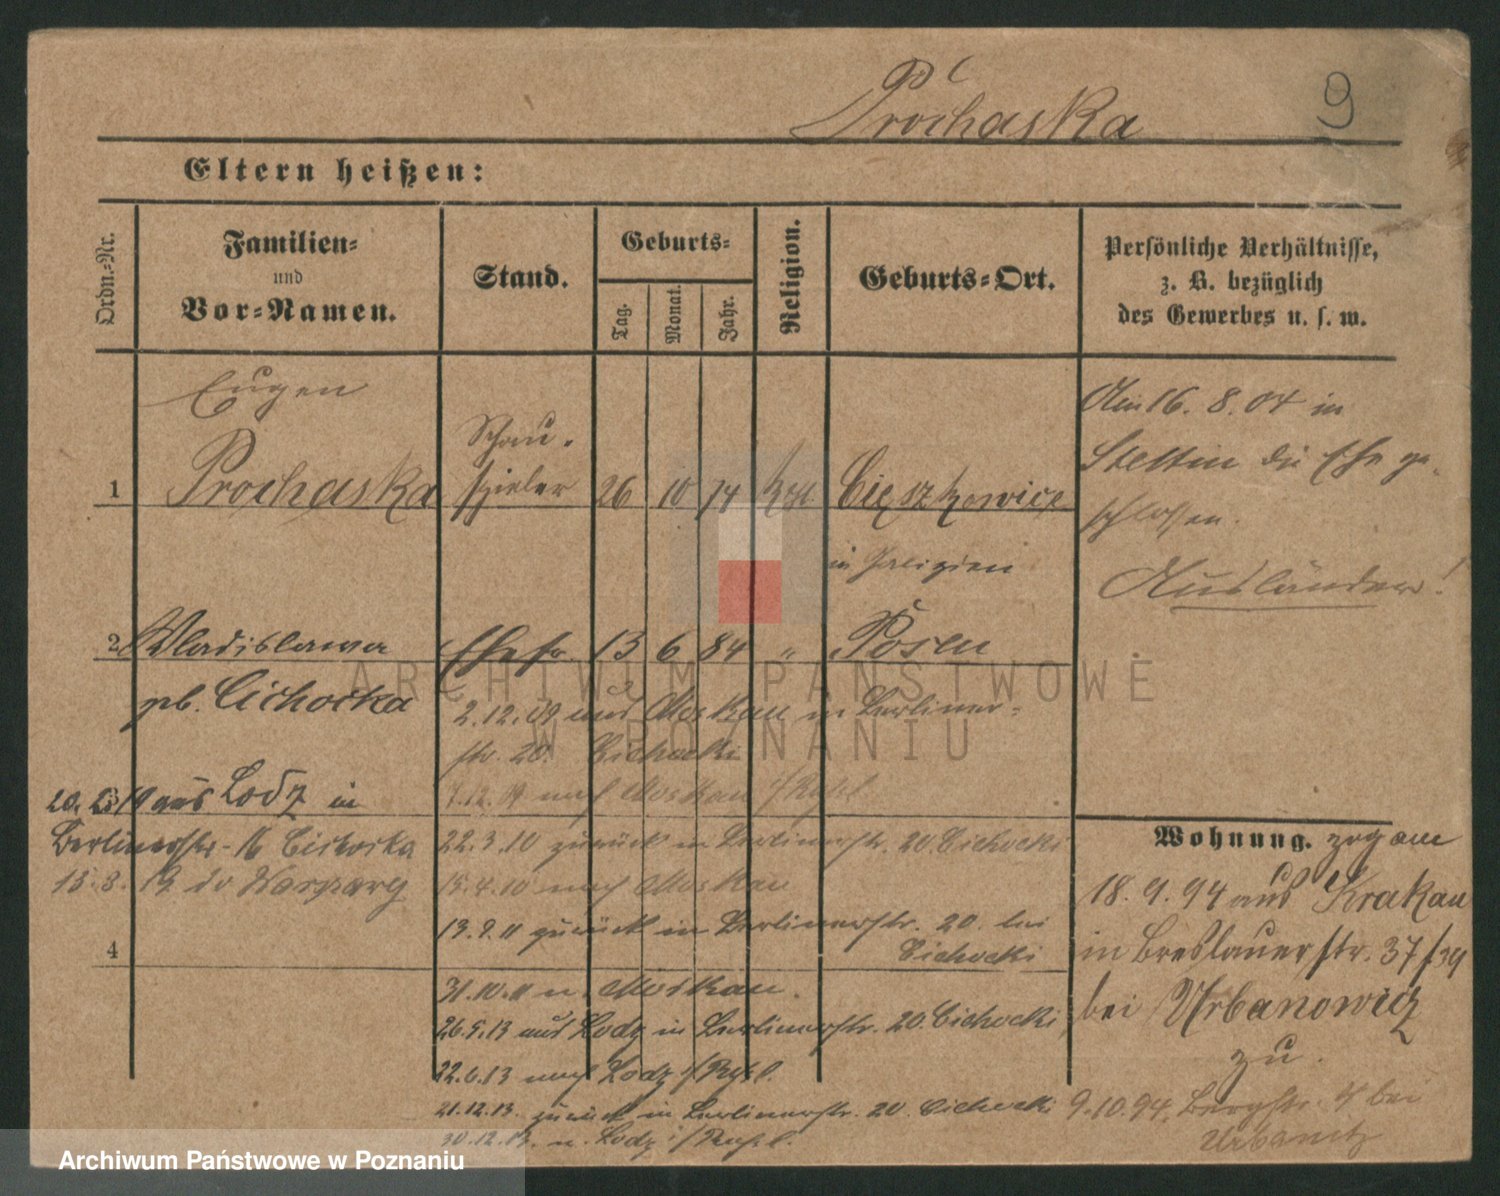 9
Prochaska
Eltern heißen:
Ordn.-Nr.
Familien-
und
Vor-Namen.
Stand.
Geburts-
Tag.
Monat.
Jahr.
Religion.
Geburts-Ort.
Persönliche Verhältnisse,
z. B. bezüglich
des Gewerbes u. s. w.
Eugen
1 Prochaska
Schau-
spieler
26 10 74 kath. Ciężkowice
in Galizien
Am 16. 8. 04 in
Stettin die Ehe ge-
schlossen.
Ausländer!
2 Wladislawa
gb. Cichocka
Ehefr. 13 6 84 " Posen
2.12.09 aus Moskau in Berliner-
str. 20. Cichocki
7.12.09 nach Moskau i/Rußl.
22.3.10 zurück in Berlinerstr. 20. Cichocki
15.4.10 nach Moskau
13.9.11 zurück in Berlinerstr. 20. bei
Cichocki
31.10.11 n. Moskau.
26.5.13 aus Lodz in Berlinerstr. 20. Cichocki
22.6.13 nach Lodz i/Rußl.
21.12.13. zurück in Berlinerstr. 20 Cichocki
30.12.13. n. Lodz i/Rußl.
aus Lodz in
Berlinerstr. 16 Cichocka
4
Wohnung. zog am
18. 9. 94 aus Krakau
in Breslauerstr. 37/39
bei Urbanowicz
zu.
9.10.94. Bergstr. 4 bei
ARCHIWUM PAŃSTWOWE
W POZNANIU
Archiwum Państwowe w Poznaniu